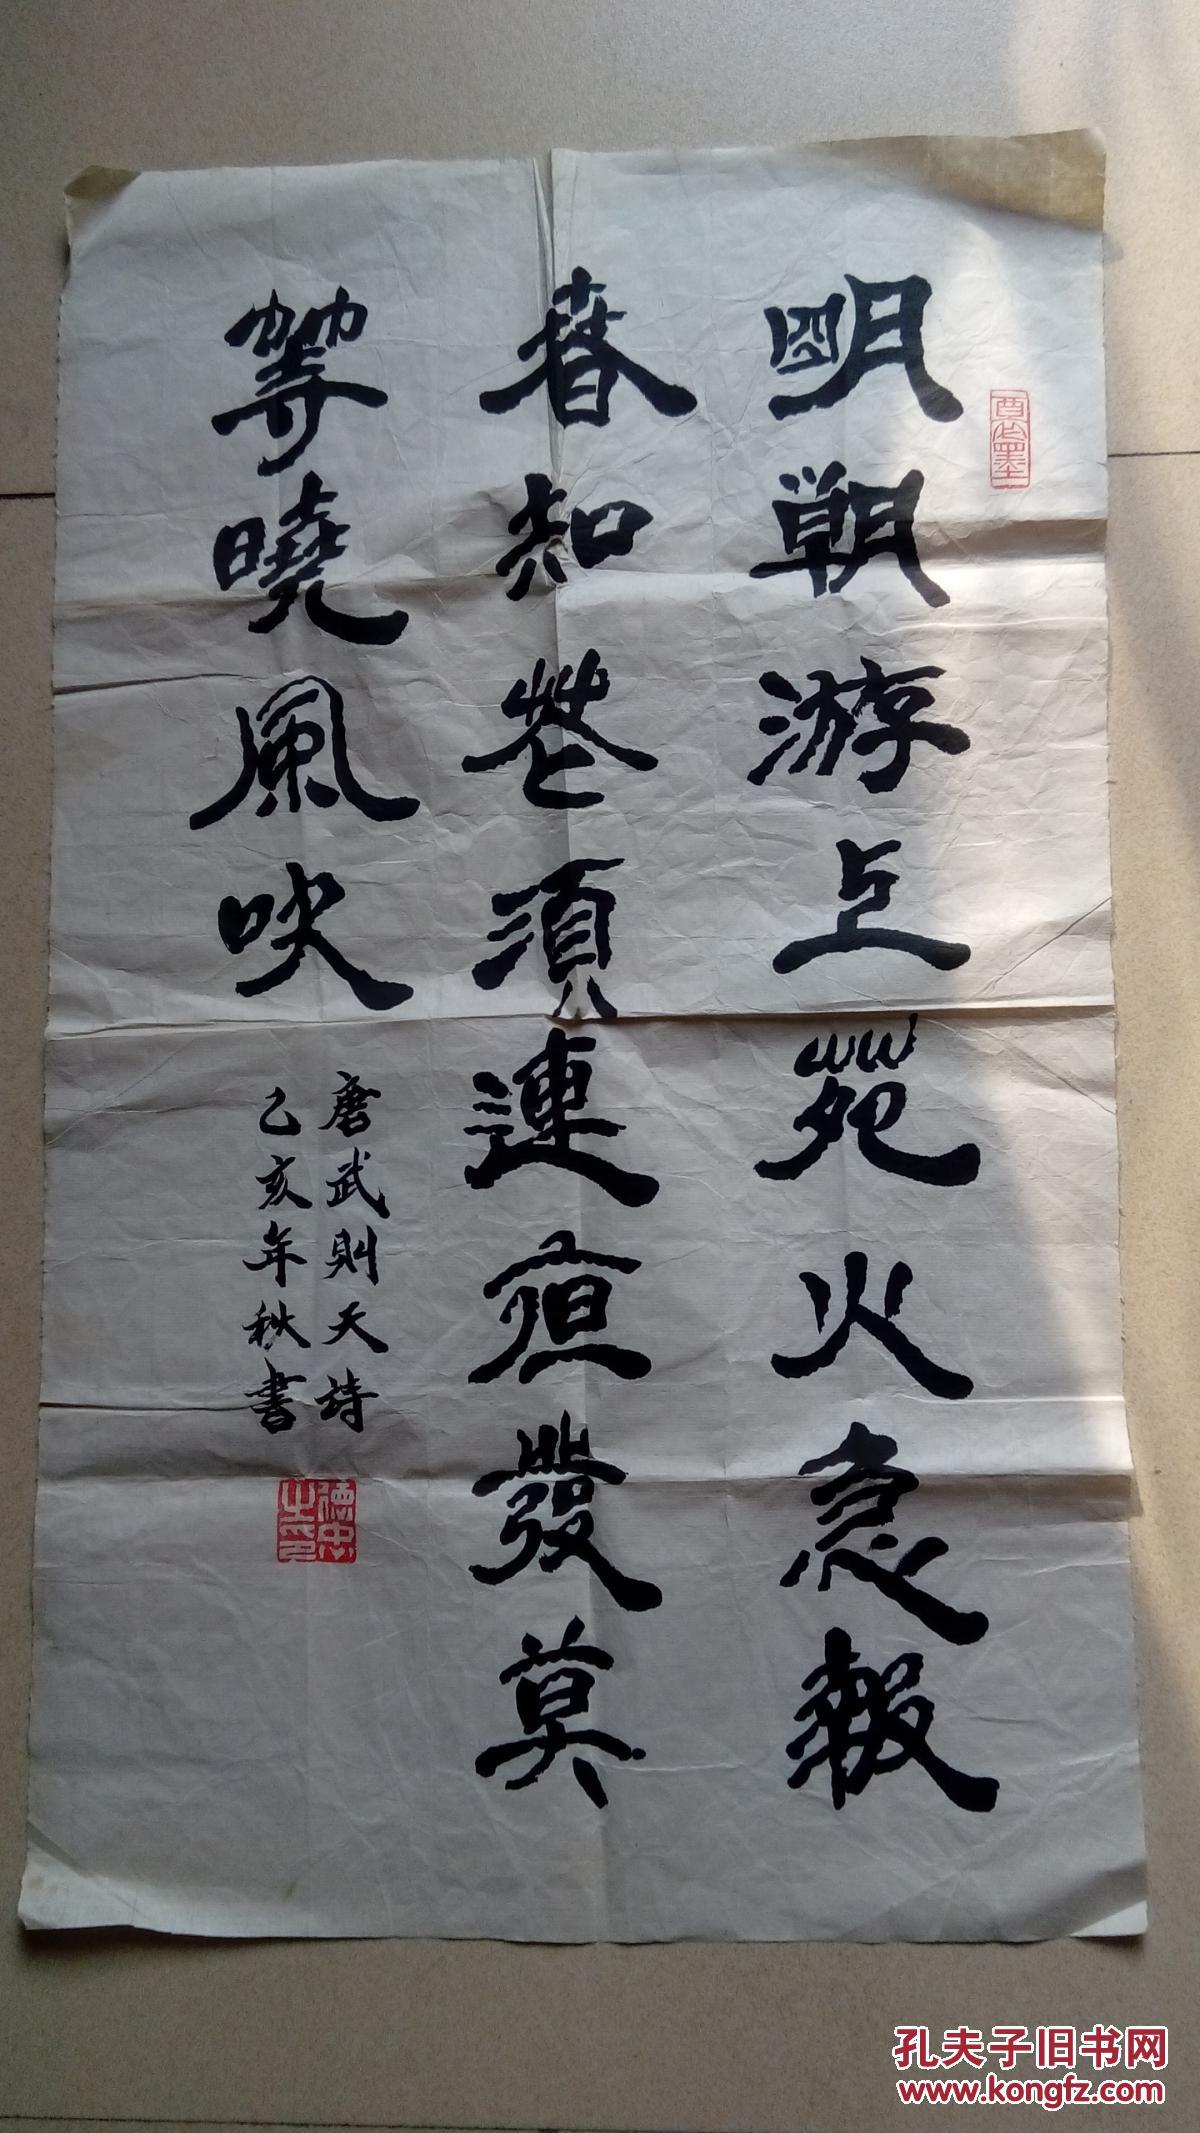 明朝游上苑火急報
春知花須連夜發莫
等曉風吹
唐武則天詩
乙亥年秋書
德忠之印
孔夫子旧书网
www.kongfz.com